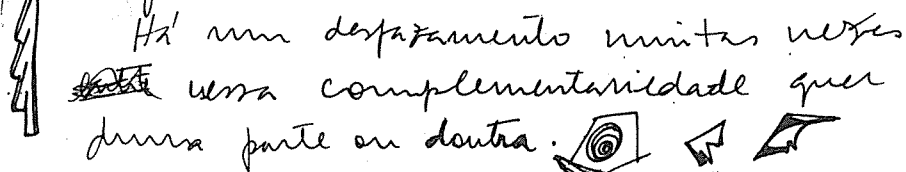 Há um desfazamento muitas vezes
nessa complementariedade quer
duma parte ou doutra.